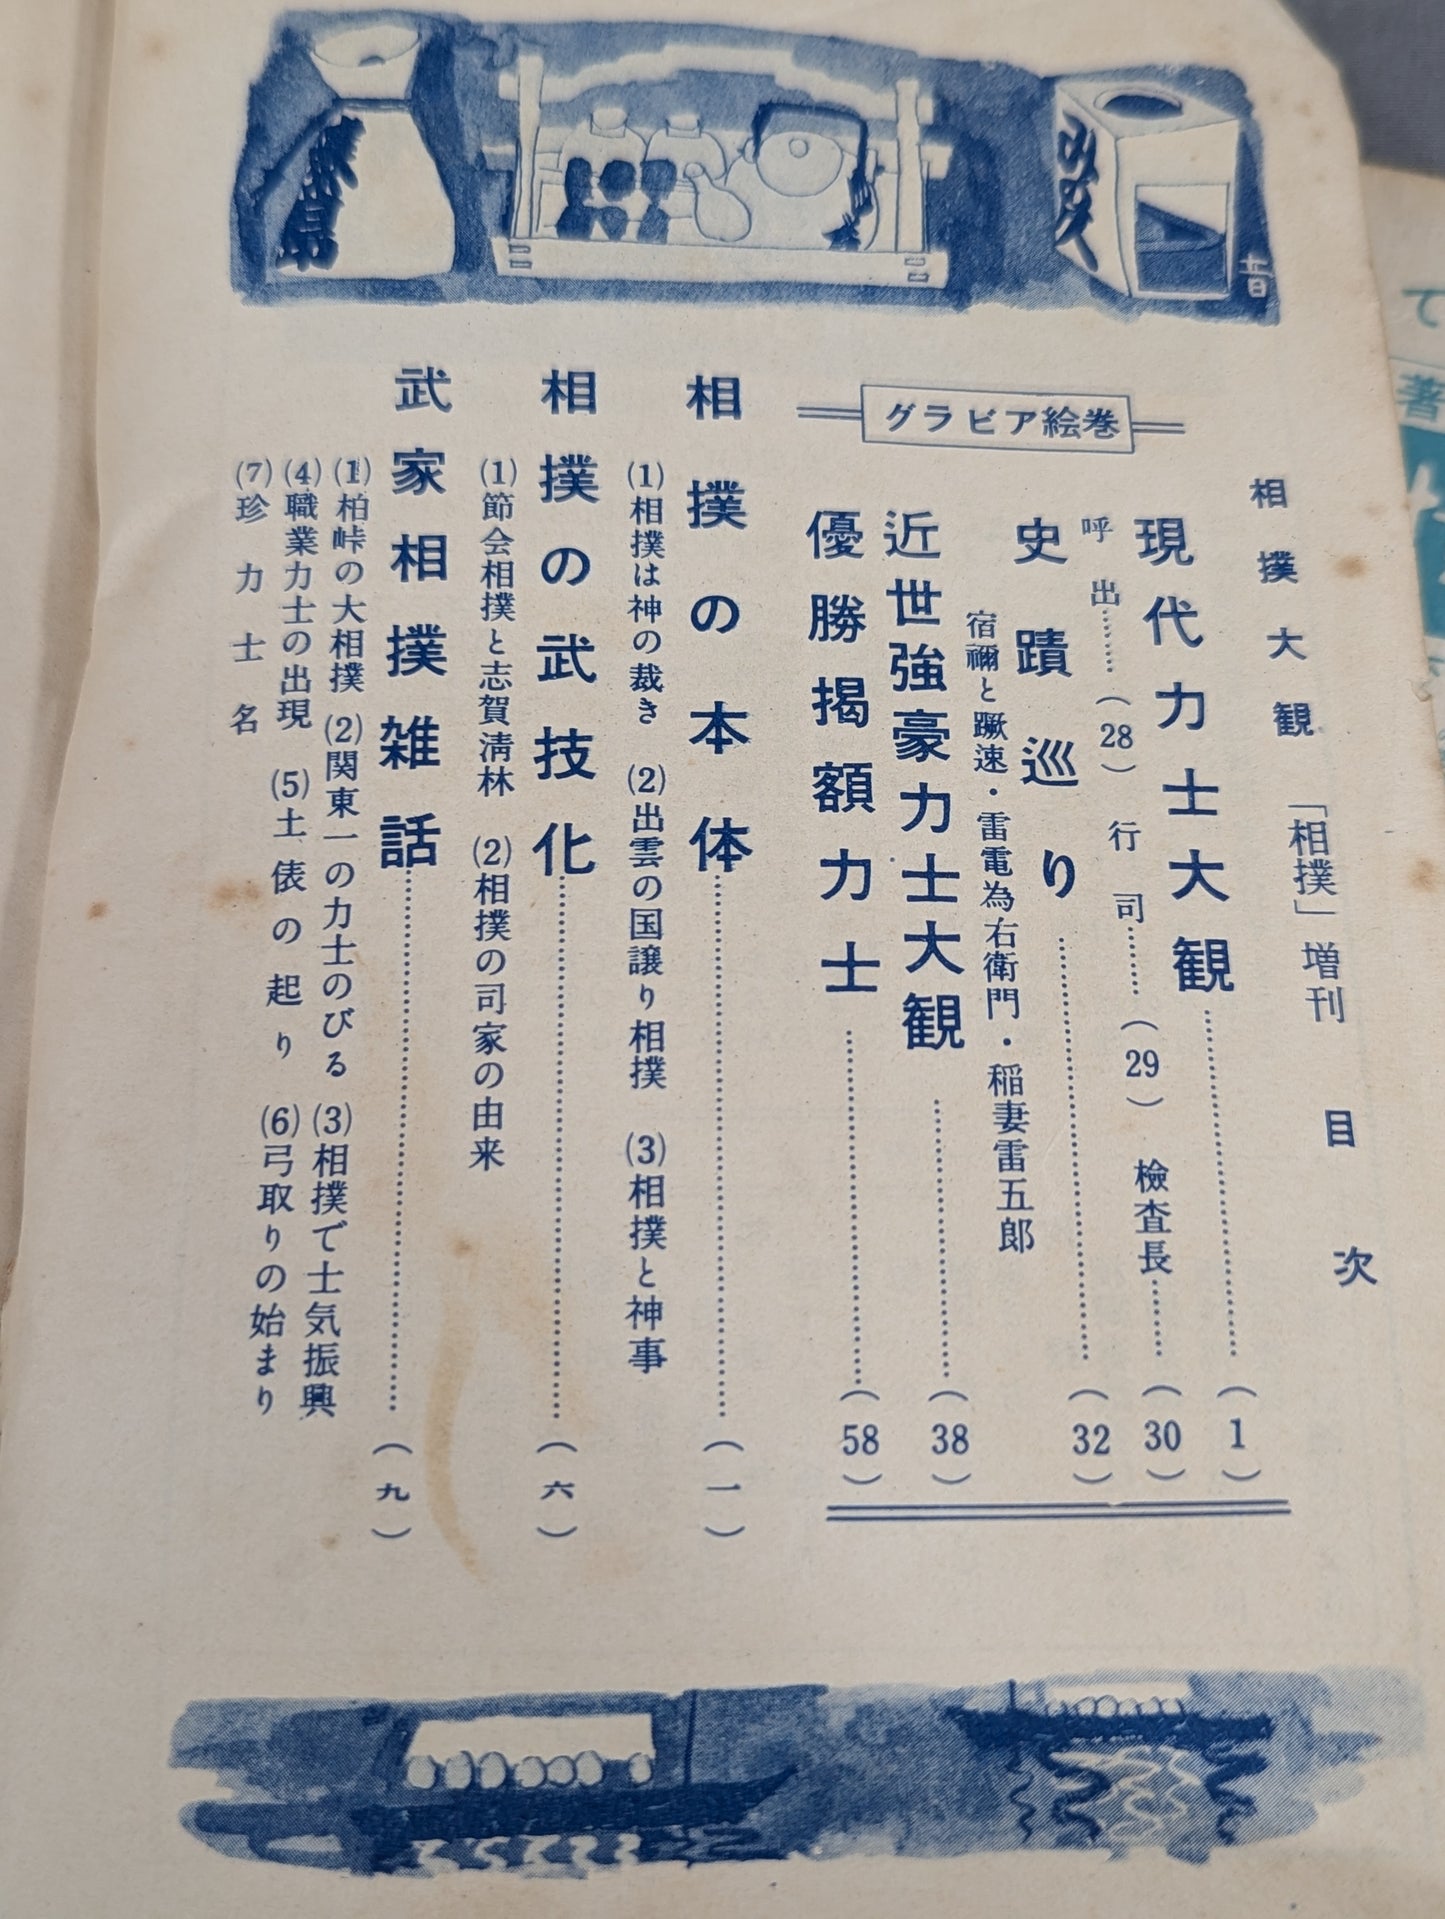 相撲大観 「相撲」増刊 目次
グラビア絵巻
現代力士大観…………(1)
呼出………(28) 行司………(29) 檢査長………(30)
史蹟巡り…………(32)
宿禰と蹶速・雷電為右衛門・稲妻雷五郎
近世強豪力士大観…………(38)
優勝掲額力士…………(58)
相撲の本体…………(一)
(1)相撲は神の裁き (2)出雲の国譲り相撲 (3)相撲と神事
相撲の武技化…………(六)
(1)節会相撲と志賀淸林 (2)相撲の司家の由来
武家相撲雑話…………(九)
(1)柏峠の大相撲 (2)関東一の力士のびる (3)相撲で士気振興
(4)職業力士の出現 (5)土俵の起り (6)弓取りの始まり
(7)珍力士名
て
著